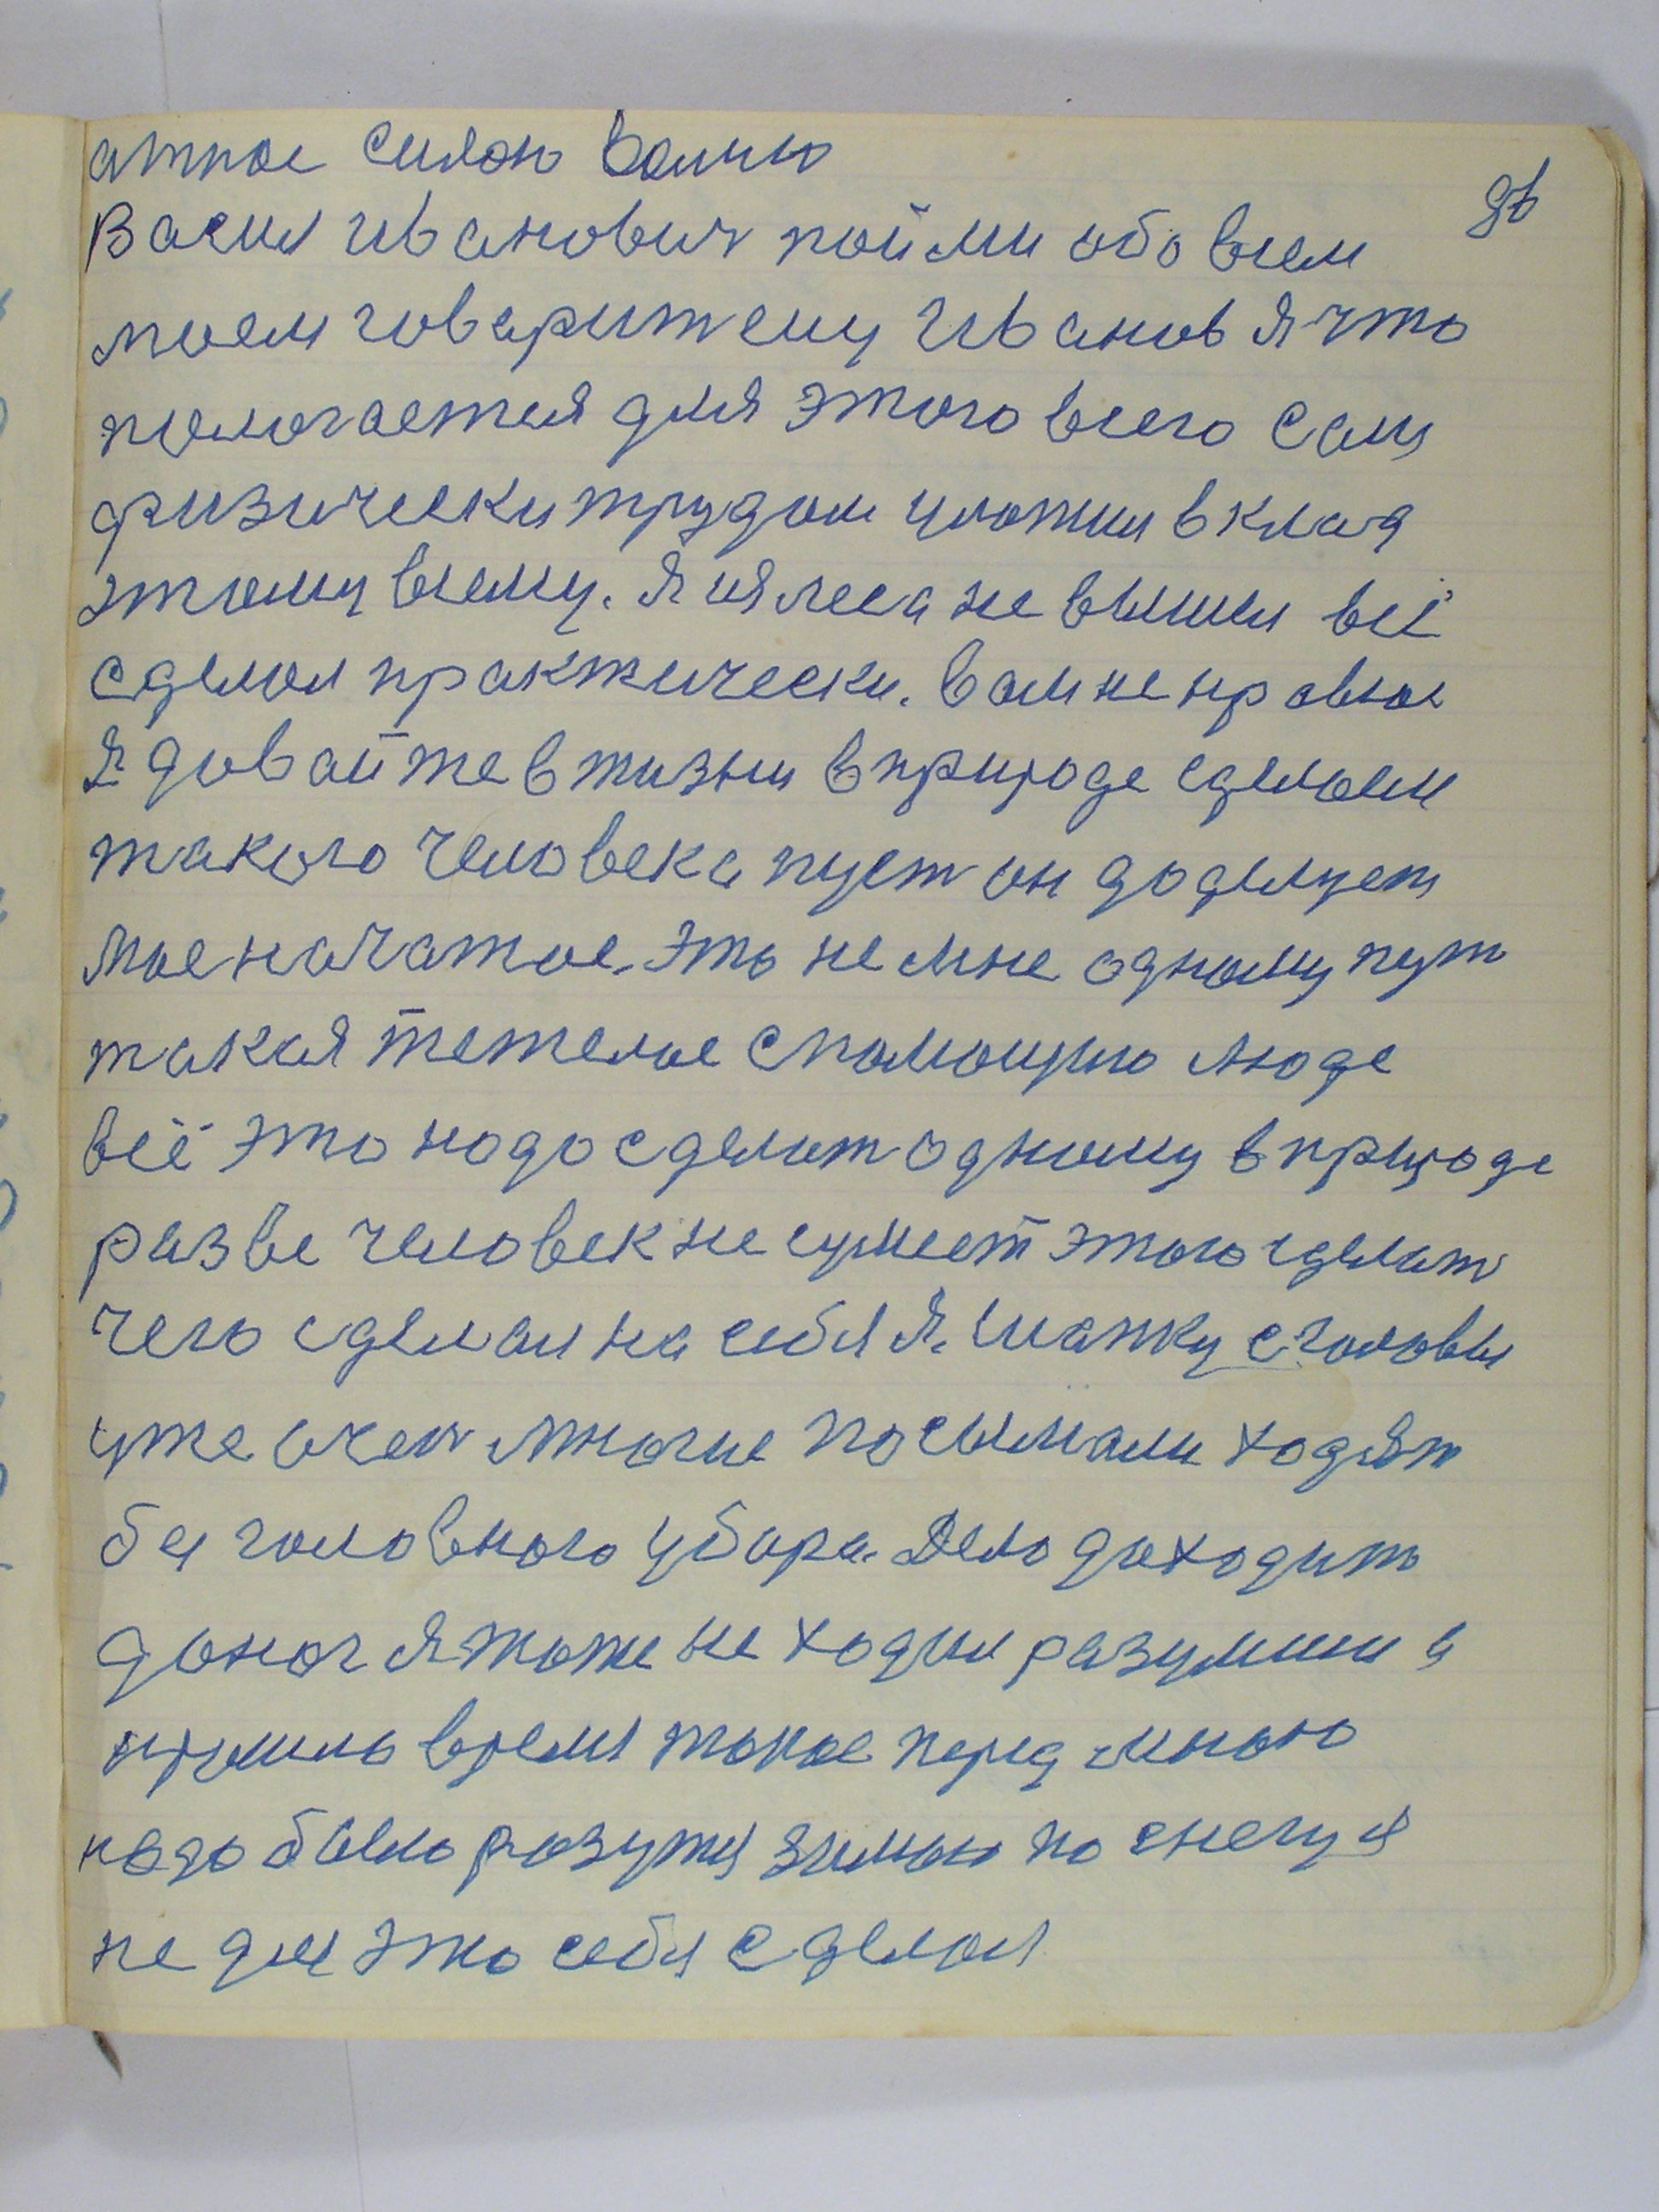 атное силою волию
Васил Иванович пойми обо всем
моем говарит ему Иванов я что
пологается для этого всего сам
физически трудом уложил вклад
этому всему. Я ис леса не вышел всё
сделал практически. Вам не нравлюс
я давайте в жизни в природе сделаем
такого человека пуст он доделует
мое начатое. Это не мне одному пут
такая тежелое с помощию люде
всё это надо сделат одному в природе
разве человек не сумеет этого сделат
чего сделал на себя я. Шапку с головы
уже очен многие посымали ходят
без головного убора. Дело доходит
до ног я тоже не ходил разумши а
пришло время такое перед мною
надо было разутся зимою по снегу я
не для это себя сделал